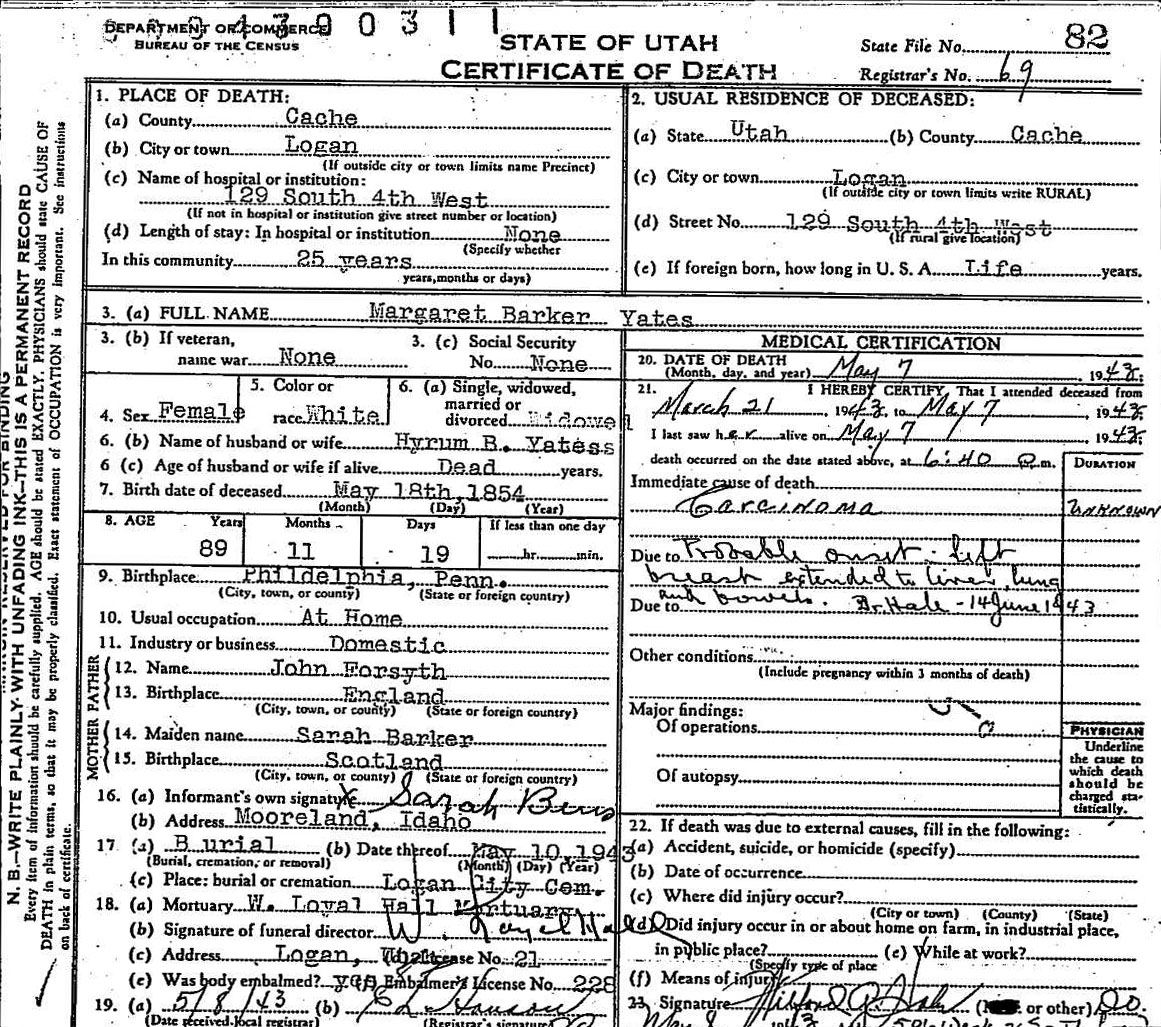 DEPARTMENT OF COMMERCE
BUREAU OF THE CENSUS
9 4 3 0 0 3 1 1
STATE OF UTAH
CERTIFICATE OF DEATH
State File No. 82
Registrar's No. 69
N. B.—WRITE PLAINLY WITH UNFADING INK—THIS IS A PERMANENT RECORD
Every item of information should be carefully supplied. AGE should be stated EXACTLY. PHYSICIANS should state CAUSE OF
DEATH in plain terms, so that it may be properly classified. Exact statement of OCCUPATION is very important. See instructions
on back of certificate.
1. PLACE OF DEATH:
(a) County Cache
(b) City or town Logan
(If outside city or town limits name Precinct)
(c) Name of hospital or institution:
129 South 4th West
(If not in hospital or institution give street number or location)
(d) Length of stay: In hospital or institution None
(Specify whether
In this community 25 years
years, months or days)
2. USUAL RESIDENCE OF DECEASED:
(a) State Utah (b) County Cache
(c) City or town Logan
(If outside city or town limits write RURAL)
(d) Street No. 129 South 4th West
(If rural give location)
(e) If foreign born, how long in U. S. A. Life years.
3. (a) FULL NAME Margaret Barker Yates
3. (b) If veteran,
name war None
3. (c) Social Security
No. None
4. Sex Female
5. Color or
race White
6. (a) Single, widowed,
married or
divorced Widowe
6. (b) Name of husband or wife Hyrum B. Yatess
6 (c) Age of husband or wife if alive Dead years.
7. Birth date of deceased May 18th, 1854
(Month) (Day) (Year)
8. AGE Years Months Days If less than one day
89 11 19 hr. min.
9. Birthplace Phildelphia, Penn.
(City, town, or county) (State or foreign country)
10. Usual occupation At Home
11. Industry or business Domestic
FATHER
12. Name John Forsyth
13. Birthplace England
(City, town, or county) (State or foreign country)
MOTHER
14. Maiden name Sarah Barker
15. Birthplace Scotland
(City, town, or county) (State or foreign country)
16. (a) Informant's own signature X Sarah
(b) Address Mooreland, Idaho
17 (a) Burial (b) Date thereof May 10, 1943
(Burial, cremation, or removal) (Month) (Day) (Year)
(c) Place: burial or cremation Logan City Cem.
18. (a) Mortuary W. Loyal Hall Mortuary
(b) Signature of funeral director W. Loyal Hall
(c) Address Logan, Utah License No. 21
(e) Was body embalmed? yes Embalmer's License No. 228
19. (a) 5/8/43 (b)
(Date received local registrar) (Registrar's signature)
MEDICAL CERTIFICATION
20. DATE OF DEATH
(Month, day, and year) May 7 1943;
21. I HEREBY CERTIFY, That I attended deceased from
March 21, 1943, to May 7, 1943;
I last saw her alive on May 7 1943;
death occurred on the date stated above, at 6:40 P.m.
DURATION
Immediate cause of death
Carcinoma UNKNOWN
Due to Probable onset - left
breast extended to liver, lung
Due to and bowels. Dr Hale - 14 June 1943
Other conditions
(Include pregnancy within 3 months of death)
Major findings:
Of operations
Of autopsy
PHYSICIAN
Underline
the cause to
which death
should be
charged sta-
tistically.
22. If death was due to external causes, fill in the following:
(a) Accident, suicide, or homicide (specify)
(b) Date of occurrence
(c) Where did injury occur?
(City or town) (County) (State)
(d) Did injury occur in or about home on farm, in industrial place,
in public place? (e) While at work?
(Specify type of place
(f) Means of injury
23. Signature (or other) DO.